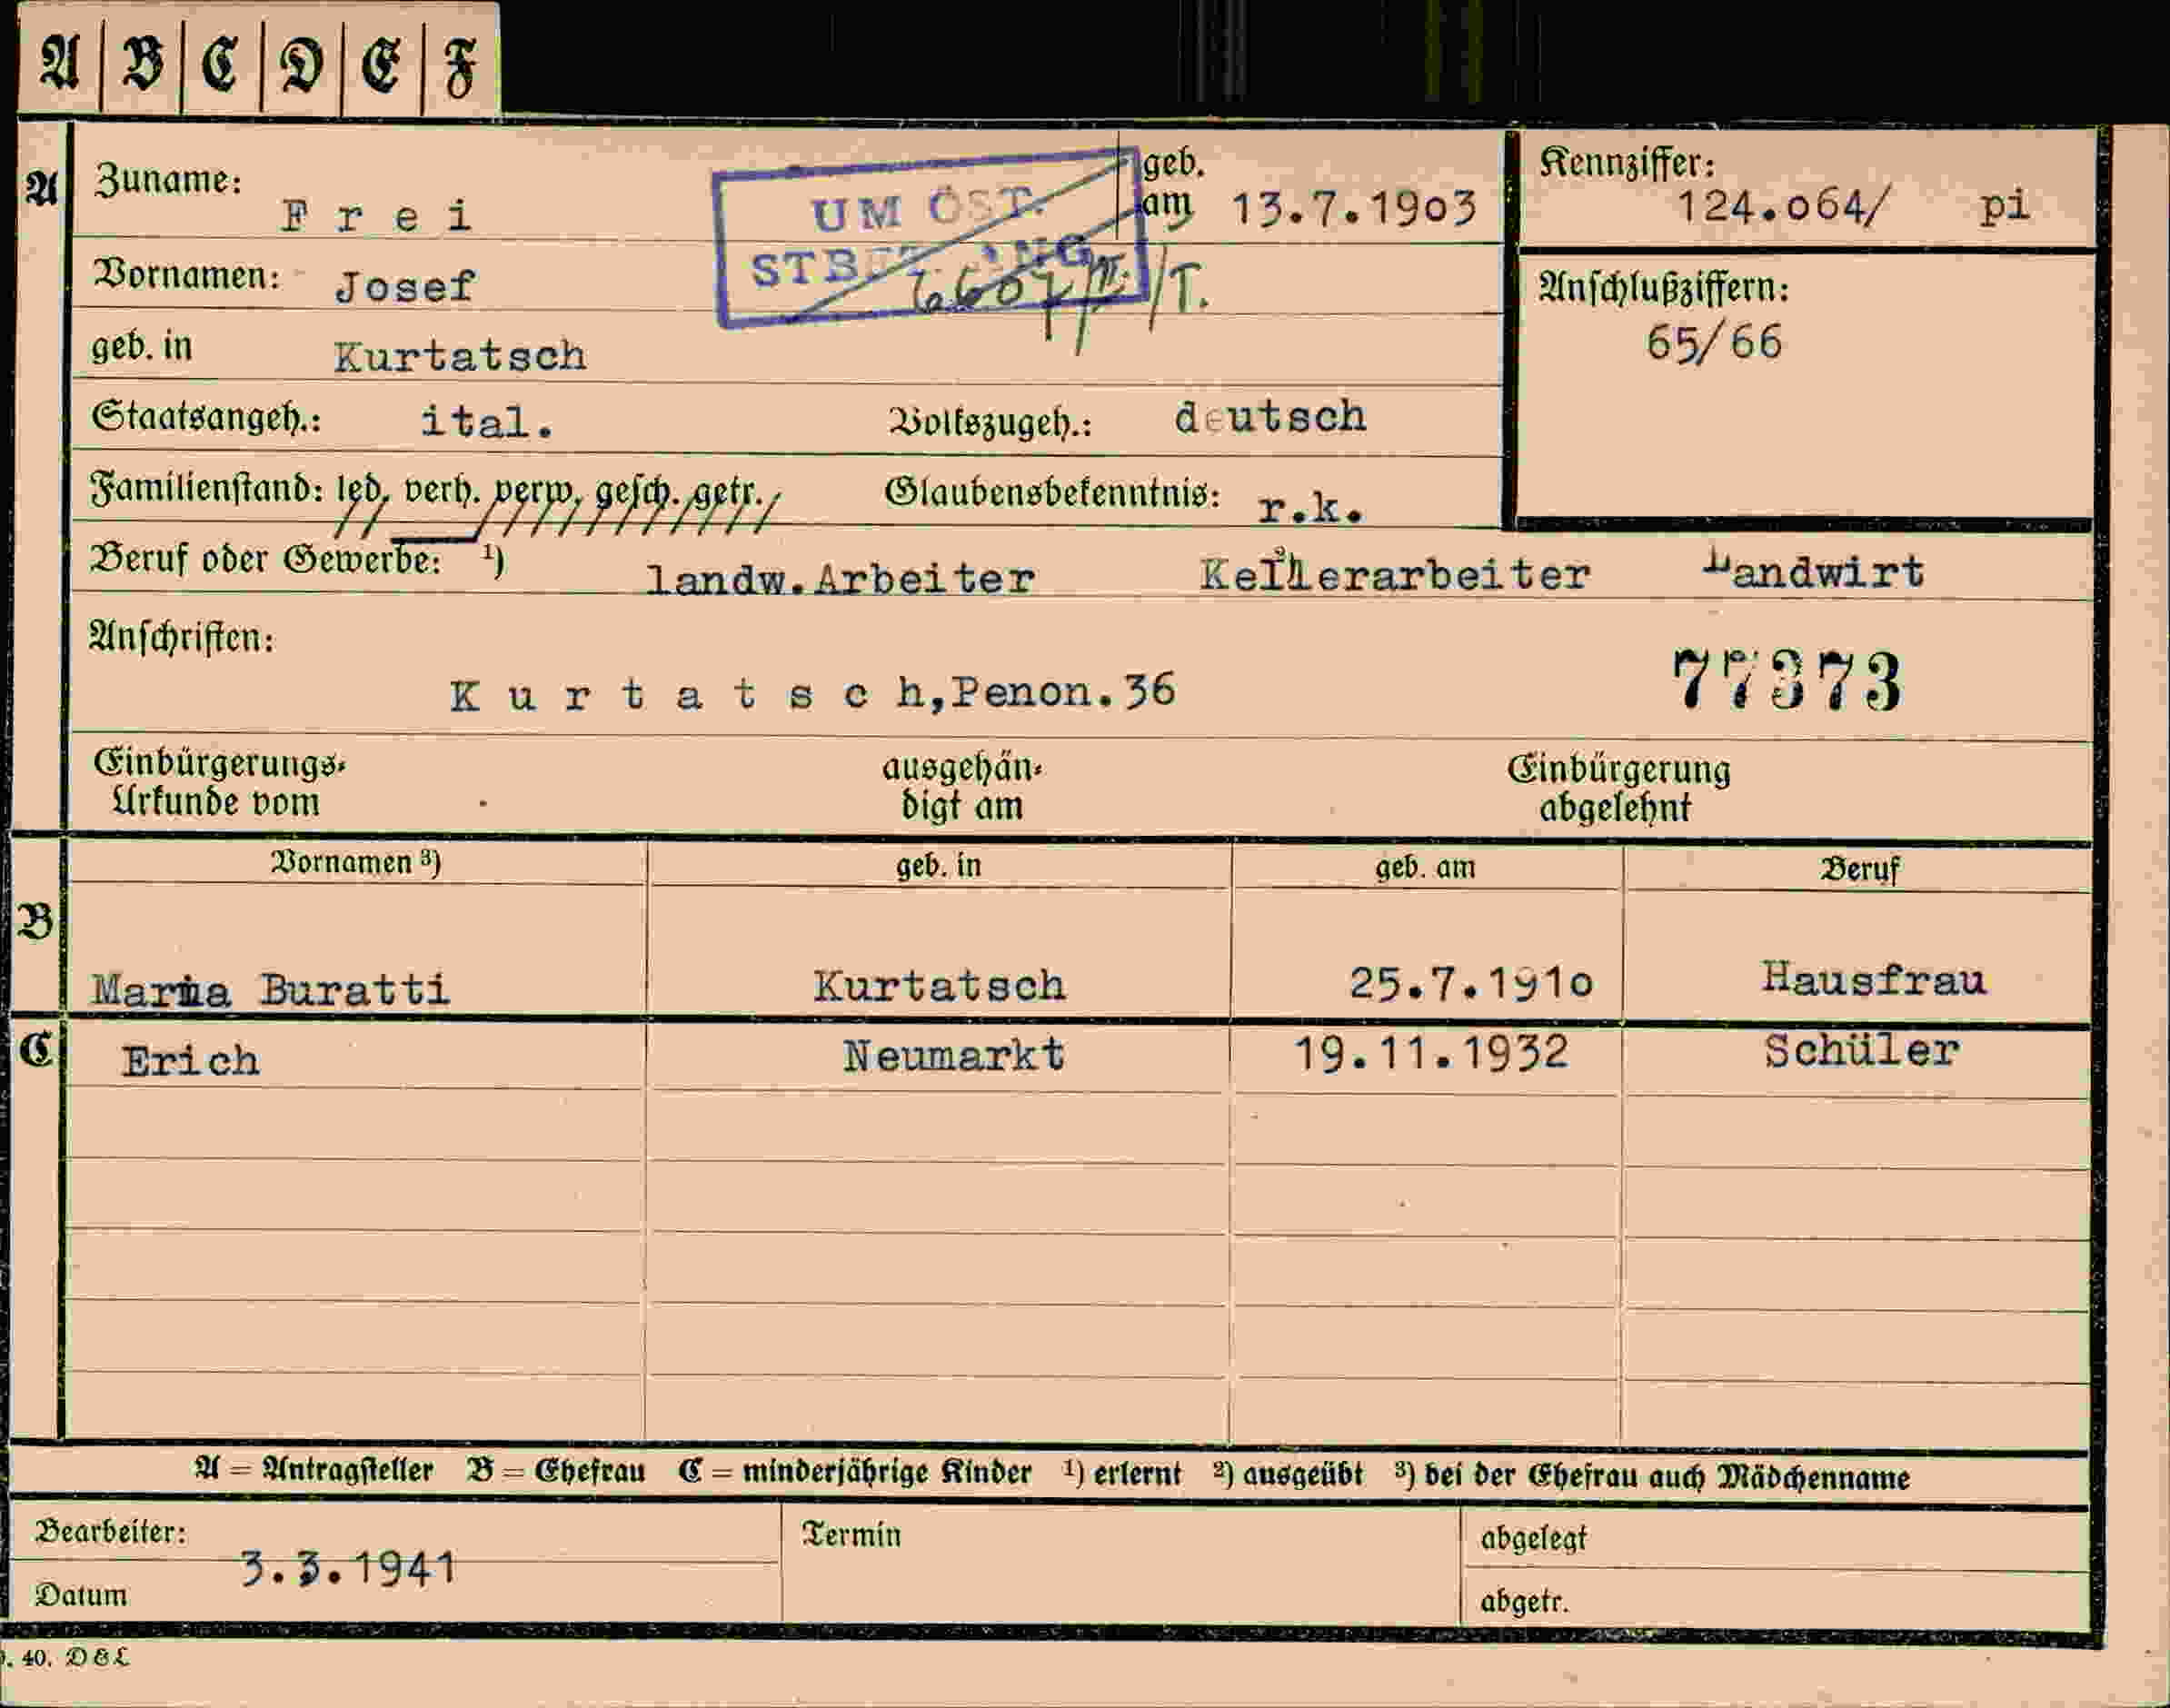 A B C D E F
A Zuname: F r e i geb. am 13.7.1903 Kennziffer: 124.064/ pi
UM ÖST.
Vornamen: Josef
geb. in Kurtatsch
Anschlußziffern: 65/66
Staatsangeh.: ital. Volkszugeh.: deutsch
Familienstand: led. verh. verw. gesch. getr. Glaubensbekenntnis: r.k.
Beruf oder Gewerbe: 1) landw.Arbeiter 2) Kellerarbeiter Landwirt
Anschriften:
K u r t a t s c h,Penon.36 77373
Einbürgerungs-Urkunde vom ausgehändigt am Einbürgerung abgelehnt
Vornamen 3) geb. in geb. am Beruf
B Maria Buratti Kurtatsch 25.7.1910 Hausfrau
C Erich Neumarkt 19.11.1932 Schüler
A = Antragsteller B = Ehefrau C = minderjährige Kinder 1) erlernt 2) ausgeübt 3) bei der Ehefrau auch Mädchenname
Bearbeiter: Termin abgelegt
3.3.1941
Datum abgetr.
40. D&L